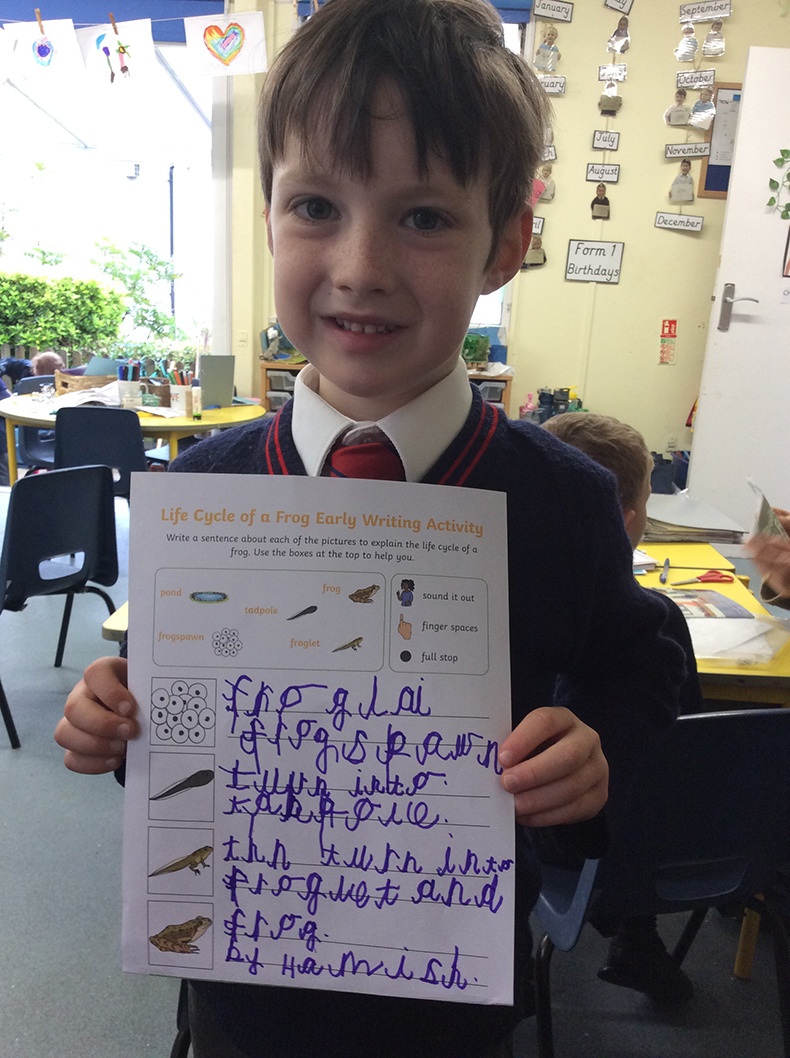 January
September
October
July
August
November
December
Form 1
Birthdays
Life Cycle of a Frog Early Writing Activity
Write a sentence about each of the pictures to explain the life cycle of a
frog. Use the boxes at the top to help you.
pond
frog
tadpole
frogspawn
froglet
sound it out
finger spaces
full stop
frog lai
frogspawn
turn into.
tn turn into
froguet and
frog.
By Hamish.